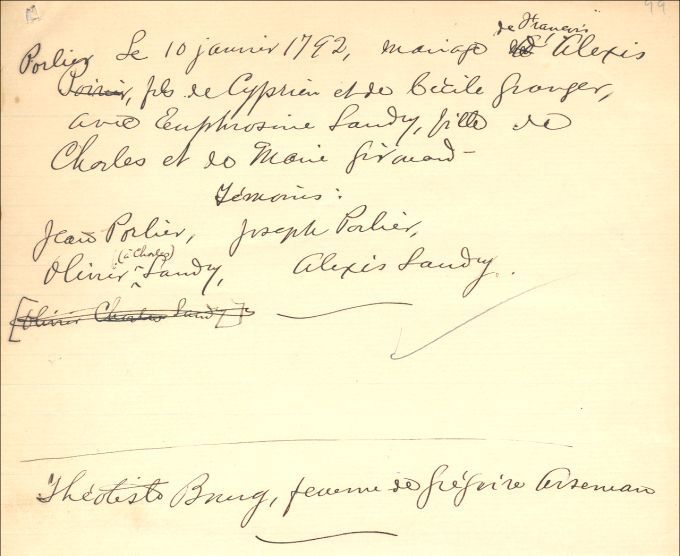 99
de François
Porlier Le 10 janvier 1792, mariage Alexis
Poirier, fils de Cyprien et de Cécile Granger,
avec Euphrosine Landry, fille de
Charles et de Marie Girouard -
Témoins:
Jean Porlier, Joseph Porlier,
(à Charles)
Olivier ^ Landry, Alexis Landry.
[Olivier Charles Landry]
Théotiste Bourg, femme de Grégoire Arseneau